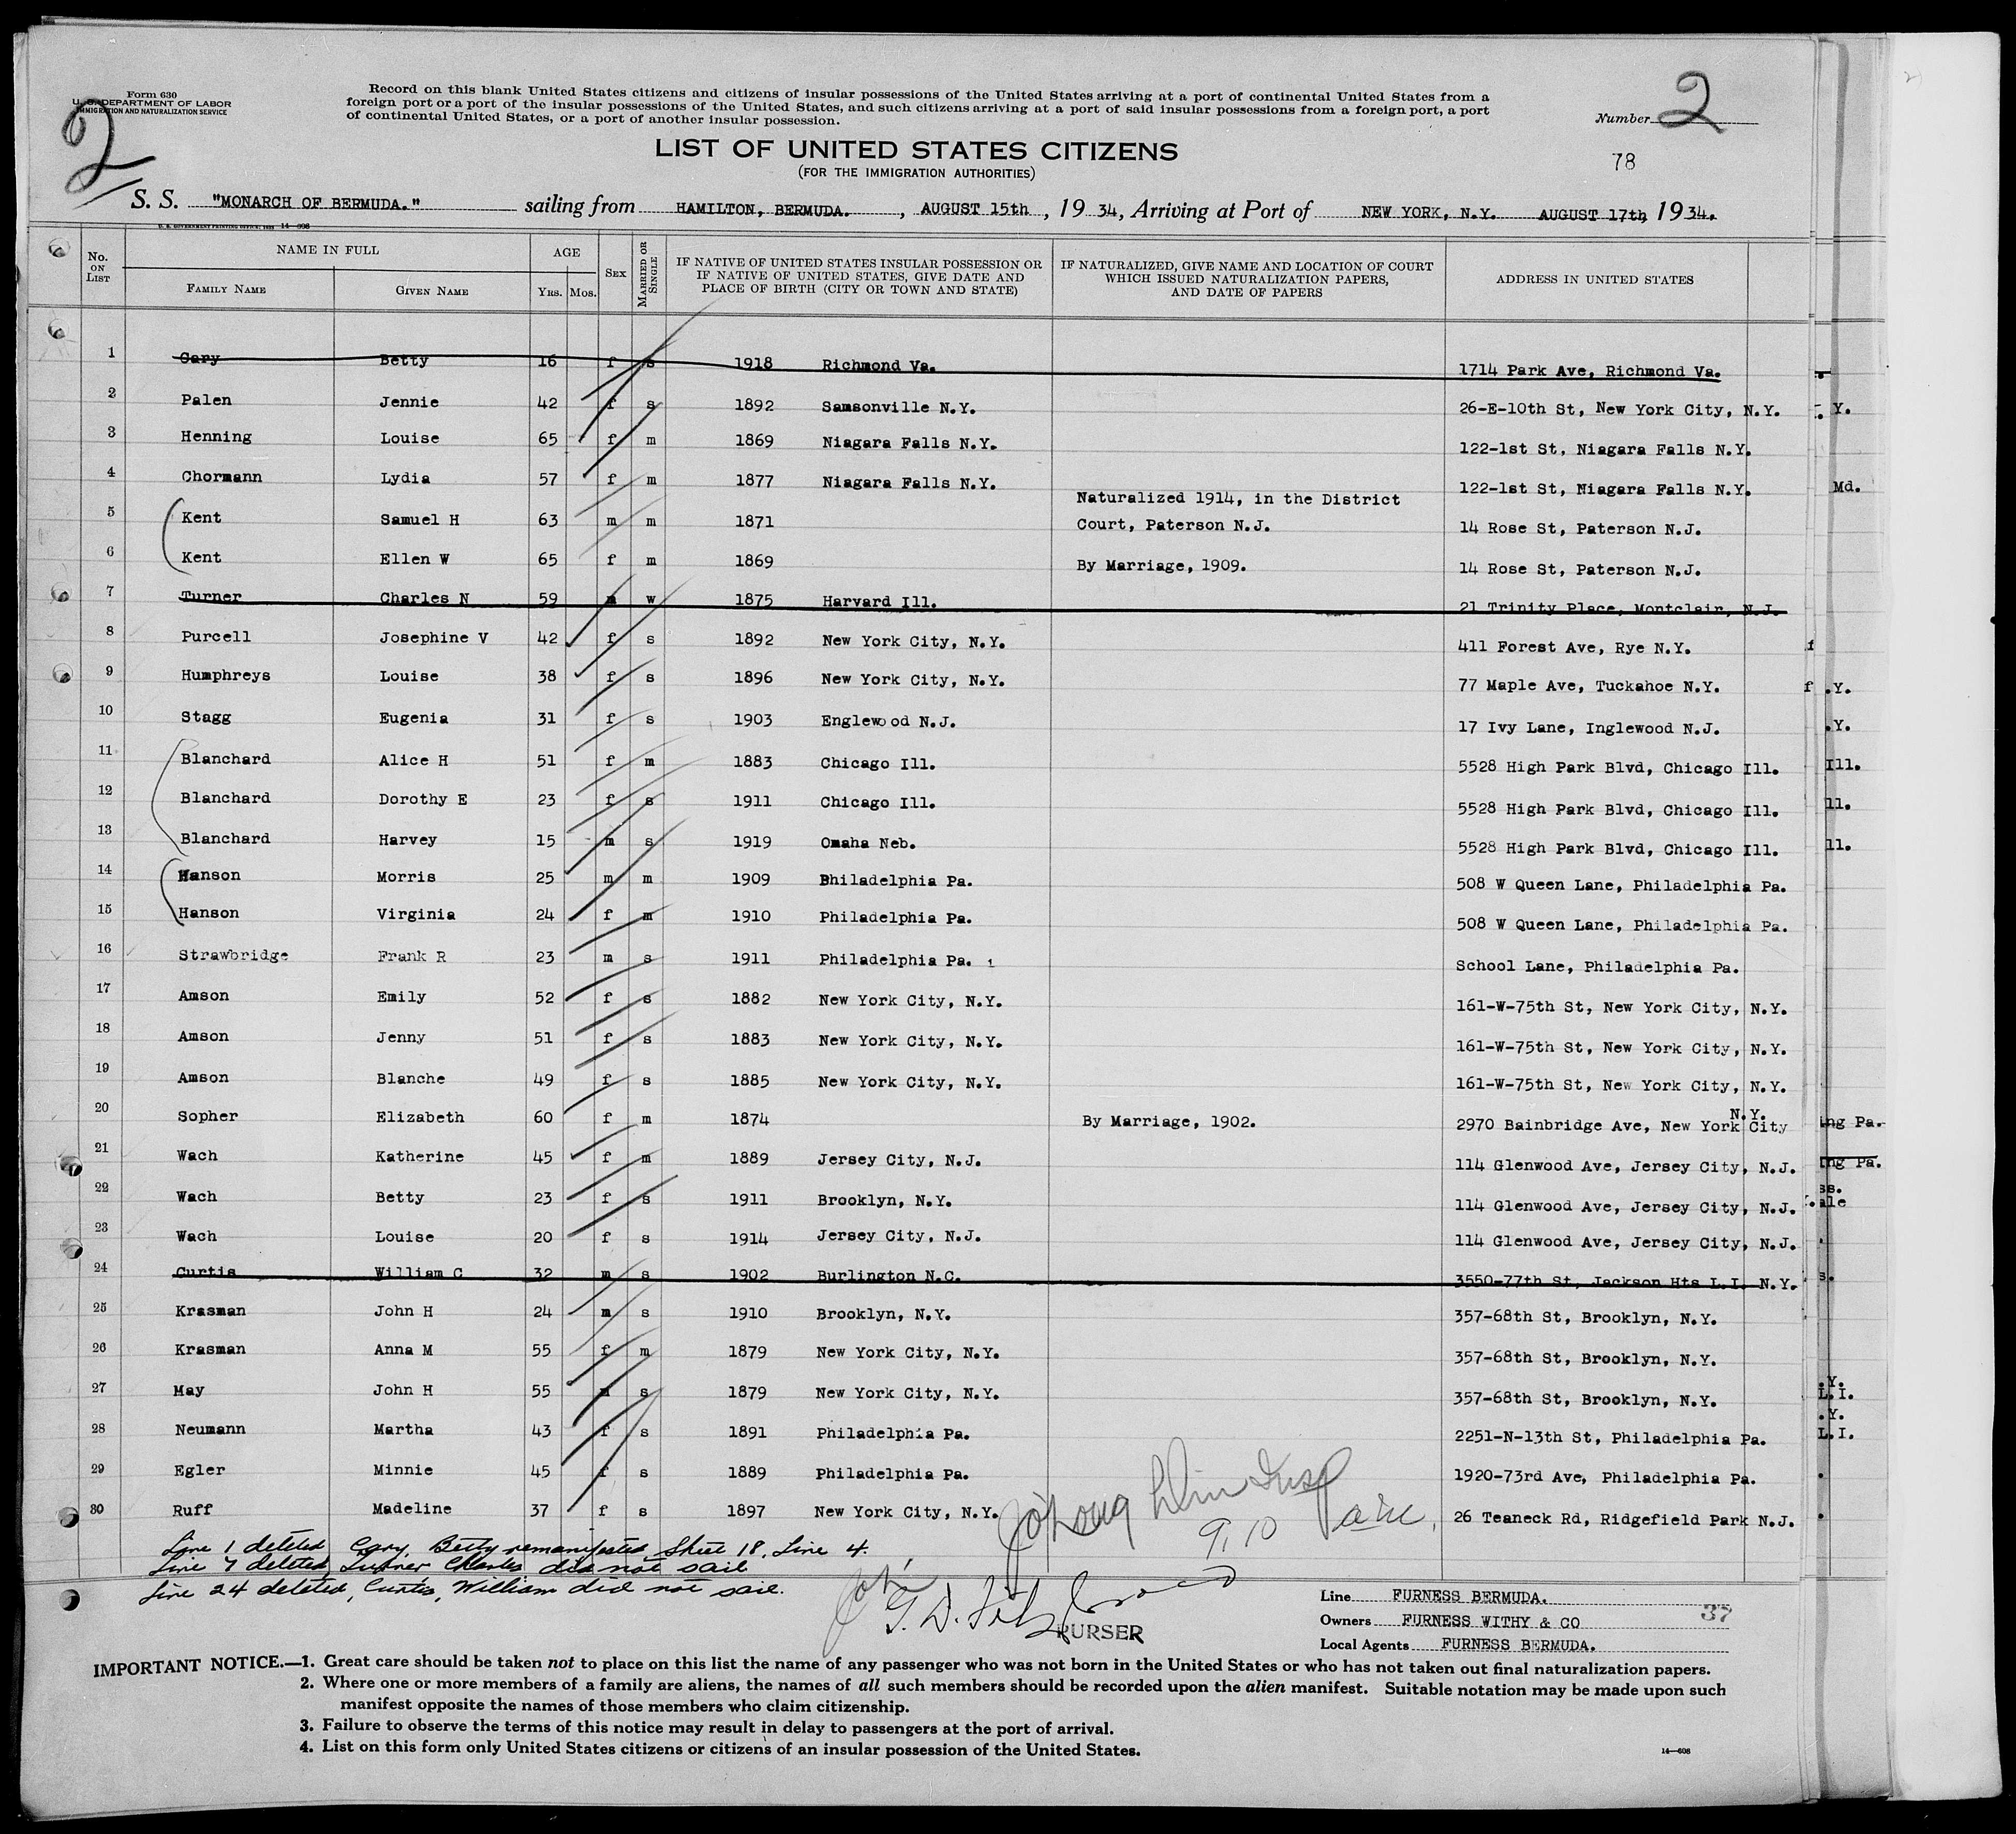 Form 630
U. S. DEPARTMENT OF LABOR
IMMIGRATION AND NATURALIZATION SERVICE
2
Record on this blank United States citizens and citizens of insular possessions of the United States arriving at a port of continental United States from a
foreign port or a port of the insular possessions of the United States, and such citizens arriving at a port of said insular possessions from a foreign port, a port
of continental United States, or a port of another insular possession.
Number 2
78
LIST OF UNITED STATES CITIZENS
(FOR THE IMMIGRATION AUTHORITIES)
S. S. "MONARCH OF BERMUDA." sailing from HAMILTON, BERMUDA. , AUGUST 15th , 19 34, Arriving at Port of NEW YORK, N.Y. AUGUST 17th, 19 34.
U. S. GOVERNMENT PRINTING OFFICE: 14—608
No. ON LIST NAME IN FULL FAMILY NAME GIVEN NAME AGE YRS. MOS. SEX MARRIED OR SINGLE IF NATIVE OF UNITED STATES INSULAR POSSESSION OR IF NATIVE OF UNITED STATES, GIVE DATE AND PLACE OF BIRTH (CITY OR TOWN AND STATE) IF NATURALIZED, GIVE NAME AND LOCATION OF COURT WHICH ISSUED NATURALIZATION PAPERS, AND DATE OF PAPERS ADDRESS IN UNITED STATES
1 Cary Betty 16 f s 1918 Richmond Va. 1714 Park Ave, Richmond Va.
2 Palen Jennie 42 f s 1892 Samsonville N.Y. 26-E-10th St, New York City, N.Y. Y.
3 Henning Louise 65 f m 1869 Niagara Falls N.Y. 122-1st St, Niagara Falls N.Y.
4 Chormann Lydia 57 f m 1877 Niagara Falls N.Y. 122-1st St, Niagara Falls N.Y. Md.
5 Kent Samuel H 63 m m 1871 Naturalized 1914, in the District Court, Paterson N.J. 14 Rose St, Paterson N.J.
6 Kent Ellen W 65 f m 1869 By Marriage, 1909. 14 Rose St, Paterson N.J.
7 Turner Charles N 59 m w 1875 Harvard Ill. 21 Trinity Place, Montclair, N.J.
8 Purcell Josephine V 42 f s 1892 New York City, N.Y. 411 Forest Ave, Rye N.Y. f
9 Humphreys Louise 38 f s 1896 New York City, N.Y. 77 Maple Ave, Tuckahoe N.Y. f .Y.
10 Stagg Eugenia 31 f s 1903 Englewood N.J. 17 Ivy Lane, Inglewood N.J. .Y.
11 Blanchard Alice H 51 f m 1883 Chicago Ill. 5528 High Park Blvd, Chicago Ill. Ill.
12 Blanchard Dorothy E 23 f s 1911 Chicago Ill. 5528 High Park Blvd, Chicago Ill. ll.
13 Blanchard Harvey 15 m s 1919 Omaha Neb. 5528 High Park Blvd, Chicago Ill. ll.
14 Hanson Morris 25 m m 1909 Philadelphia Pa. 508 W Queen Lane, Philadelphia Pa.
15 Hanson Virginia 24 f m 1910 Philadelphia Pa. 508 W Queen Lane, Philadelphia Pa.
16 Strawbridge Frank R 23 m s 1911 Philadelphia Pa. School Lane, Philadelphia Pa.
17 Amson Emily 52 f s 1882 New York City, N.Y. 161-W-75th St, New York City, N.Y.
18 Amson Jenny 51 f s 1883 New York City, N.Y. 161-W-75th St, New York City, N.Y.
19 Amson Blanche 49 f s 1885 New York City, N.Y. 161-W-75th St, New York City, N.Y.
20 Sopher Elizabeth 60 f m 1874 By Marriage, 1902. 2970 Bainbridge Ave, New York City N.Y. ing Pa.
21 Wach Katherine 45 f m 1889 Jersey City, N.J. 114 Glenwood Ave, Jersey City, N.J. ing Pa.
22 Wach Betty 23 f s 1911 Brooklyn, N.Y. 114 Glenwood Ave, Jersey City, N.J. ss. ale
23 Wach Louise 20 f s 1914 Jersey City, N.J. 114 Glenwood Ave, Jersey City, N.J.
24 Curtis William C 32 m s 1902 Burlington N.C. 3550-77th St, Jackson Hts L.I. N.Y. s.
25 Krasman John H 24 m s 1910 Brooklyn, N.Y. 357-68th St, Brooklyn, N.Y.
26 Krasman Anna M 55 f m 1879 New York City, N.Y. 357-68th St, Brooklyn, N.Y.
27 May John H 55 m s 1879 New York City, N.Y. 357-68th St, Brooklyn, N.Y. .Y. L.I.
28 Neumann Martha 43 f s 1891 Philadelphia Pa. 2251-N-13th St, Philadelphia Pa. .Y. L.I.
29 Egler Minnie 45 f s 1889 Philadelphia Pa. 1920-73rd Ave, Philadelphia Pa.
30 Ruff Madeline 37 f s 1897 New York City, N.Y. 26 Teaneck Rd, Ridgefield Park N.J.
9.10
Line 1 deleted Cary, Betty remanifested Sheet 18, Line 4.
Line 7 deleted, Turner Charles did not sail
Line 24 deleted, Curtis, William did not sail.
PURSER
Line FURNESS BERMUDA.
Owners FURNESS WITHY & CO 37
Local Agents FURNESS BERMUDA.
IMPORTANT NOTICE.—1. Great care should be taken not to place on this list the name of any passenger who was not born in the United States or who has not taken out final naturalization papers.
2. Where one or more members of a family are aliens, the names of all such members should be recorded upon the alien manifest. Suitable notation may be made upon such
manifest opposite the names of those members who claim citizenship.
3. Failure to observe the terms of this notice may result in delay to passengers at the port of arrival.
4. List on this form only United States citizens or citizens of an insular possession of the United States.
14—608